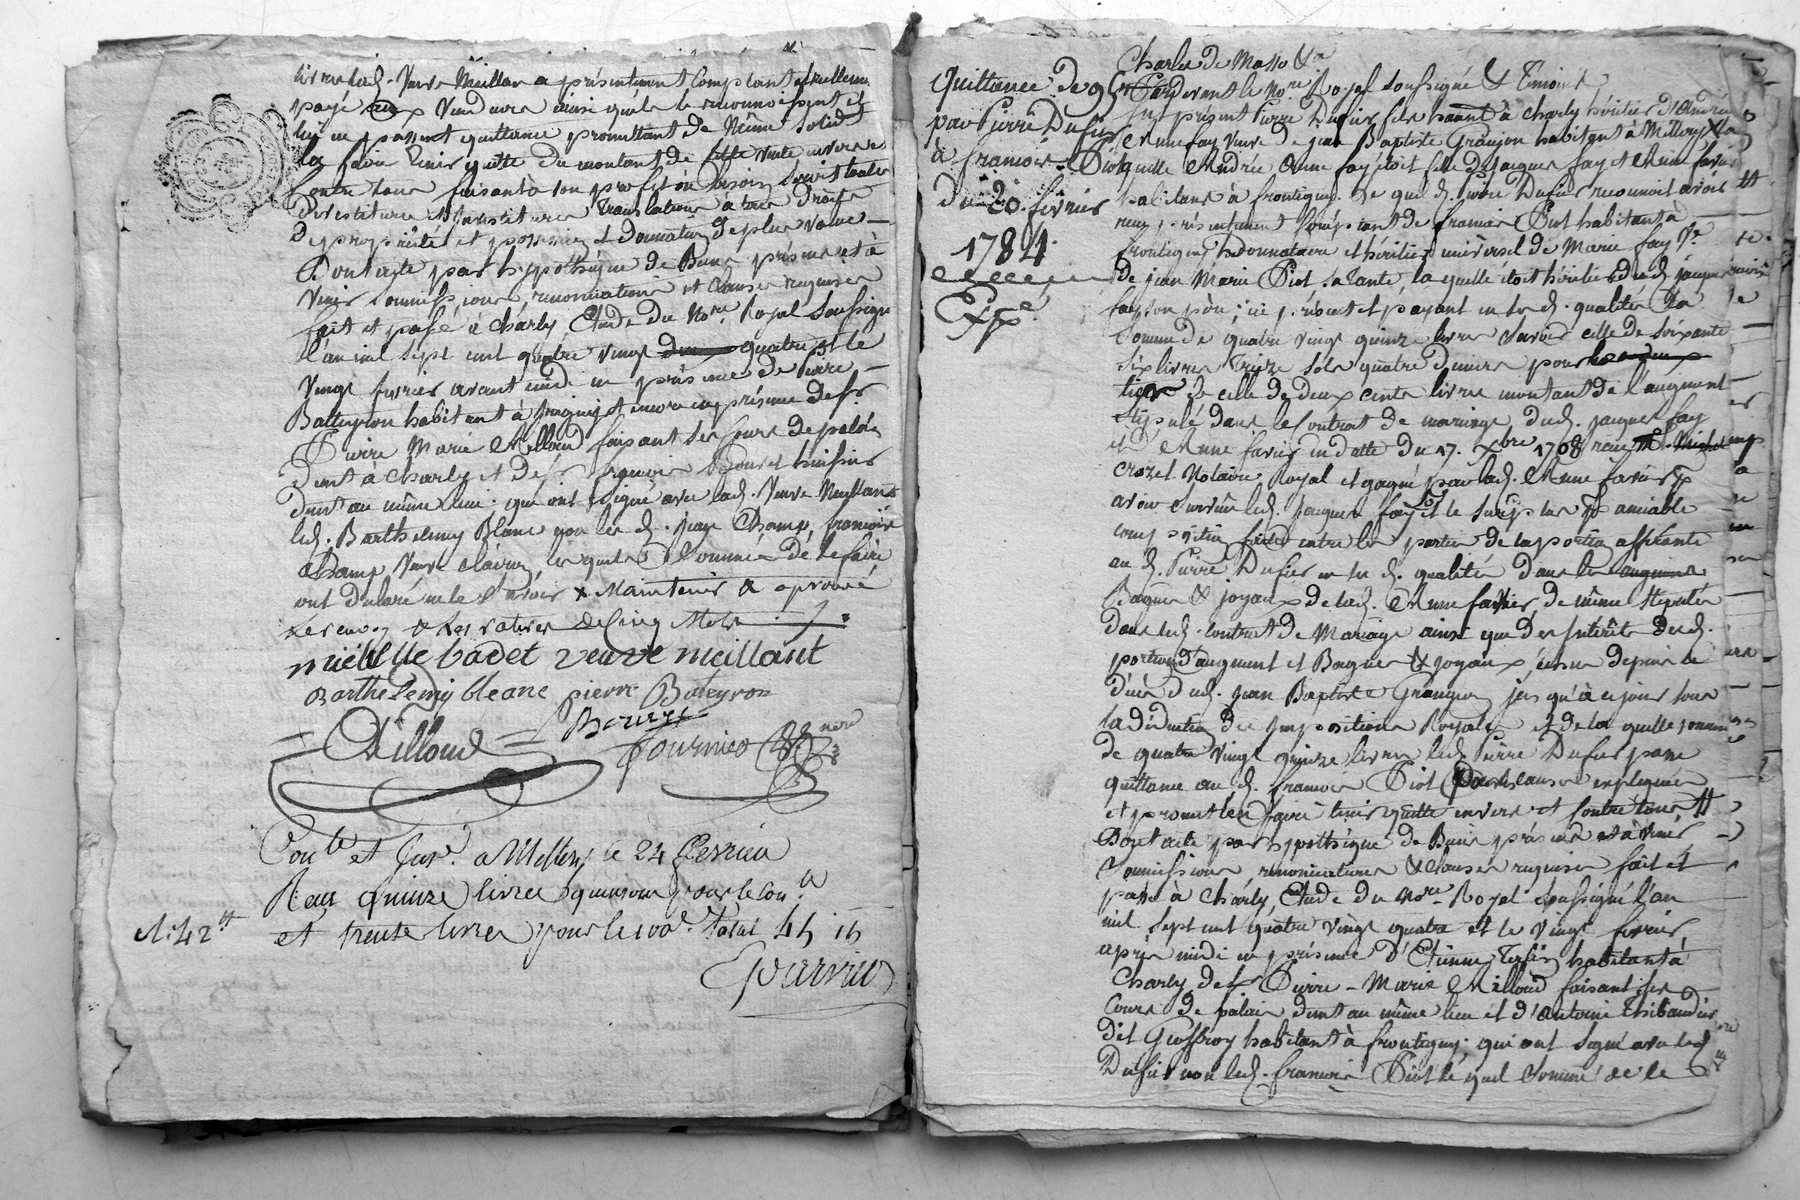 livres lad. Veuve Meillan a présentement Comptant et réellement
payé aux Vendeurs ainsi qu'ils le reconnoissent et
lui en passent quittance promettant de même
la faire tenir quitte du montant de cette vente envers et
Contre tous faisant à son profit au besoin
Devestiture et Investiture Translation à tous droits
De propriété et possession et Donnation de plus value —
Dont acte par hypothèque de Biens présens et à
Venir soumissions, renonciations et clauses requises
fait et passé à Charly Etude du No.re Royal Soussigné
l'an mil sept cent quatre vingt quatre et le
Vingt fevrier avant midi en présence de Pierre —
Batteyron habitant à et encore en présence de sr
Pierre Marie Milloud faisant ses Cours de palais
Demt. à Charly et de sr francois huissier
Demt. au même Lieu qui ont signé avec lad. Veuve Meillant
led. Barthelemy Blanc non les d. jean Champ, francoise
Champ Veuve lesquels Sommés de le faire
ont declaré ne le Savoir & Maintenir & aprouvé
Le renvoy & les ratures de Cinq Mots
mielle Cadet veuve meillant
Barthelemy bleanc pierre Bateyron
Milloud
fournico no.re
Con.lé et Insé. a Millery le 24 fevrier
Reçu quinze livres quinze sous pour le Con.le
et trente livres pour le 100e. Total 45 15
A. 42 #
Charles de Masso &a
Quittance de 95 #
par Pierre Dufier
à francois Piot
Du 20. fevrier
1784.
Expé
Pardevant le No.re Royal Soussigné & Temoins
fut présent Pierre Dufier habitant à Charly héritier d'Andrée
Anne fay Veuve de jean Baptiste Granjon habitant à Millery La
quelle Andrée Anne fay étoit fille de Jacques fay et Anne favier
habitans à frontigny. Le quel d. Pierre Dufier reconnoit avoir
reçu présentement Comptant de francois Piot habitant à
frontigny Donnataire et héritier universel de Marie fay Ve
de jean Marie Piot sa Tante, la quelle étoit héritière dud. jacques
fay son père; ici présent et payant en sa d. qualité La
Somme de quatre vingt quinze livres Savoir celle de Soixante
Six livres Treize Sols quatre Deniers pour
tiers de celle de deux cents livres montant de l'augment
Stipulé dans le Contrat de mariage dud. jacques fay
et Anne favier en datte du 17. Xbre 1708 reçu Me. Michel
Crozet Notaire Royal et gagné par lad. Anne favier pr
avoir Survécu led. jacques fay et le Surplus pr amiable
composition faite entre les parties de la portion afférente
au d. Pierre Dufier en sa d. qualité dans les
Bagues & joyaux de lad. Anne favier, de même stipulés
Dans led. Contrat de Mariage ainsi que des Intérêts desd.
portions d'augment et Bagues & joyaux échus depuis le
Décès dud. jean Baptiste Granjon jusqu'à ce jour sous
la déduction des Impositions Royales et de la quelle somme
de quatre vingt quinze livres led. Pierre Dufier passe
quittance au d. francois Piot pour les causes expliquées
et promet l'en faire tenir quitte envers et contre tous #
Dont acte par hypothèque de Biens présens et à venir
soumissions renonciations & clauses requises fait et
passé à Charly, Etude du No.re Royal Soussigné l'an
mil sept cent quatre vingt quatre et le Vingt fevrier
après midi en présence d'Etienne habitant à
Charly de sr Pierre — Marie Milloud faisant ses
Cours de palais demt. au même lieu et d'Antoine Thibaudier
dit Geoffroy habitant à frontigny; qui ont signé avec led
Dufier non led. francois Piot le quel Sommé de le